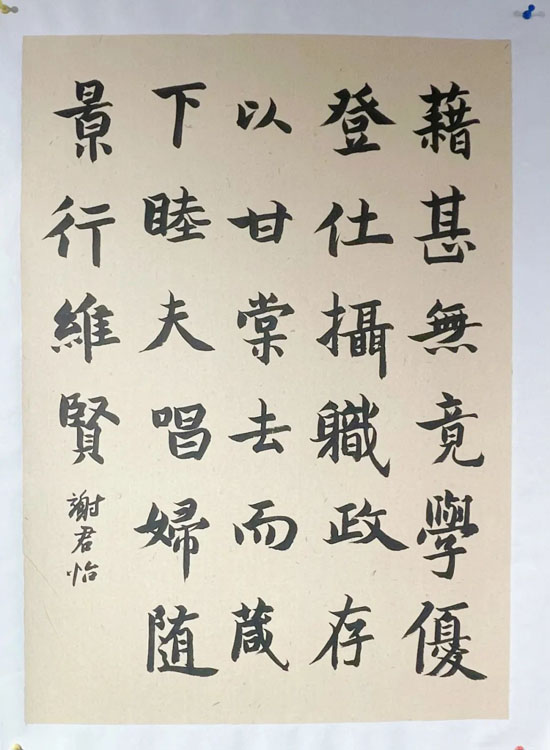 藉甚無竟學優
登仕攝職政存
以甘棠去而蔵
下睦夫唱婦随
景行維賢
謝君怡